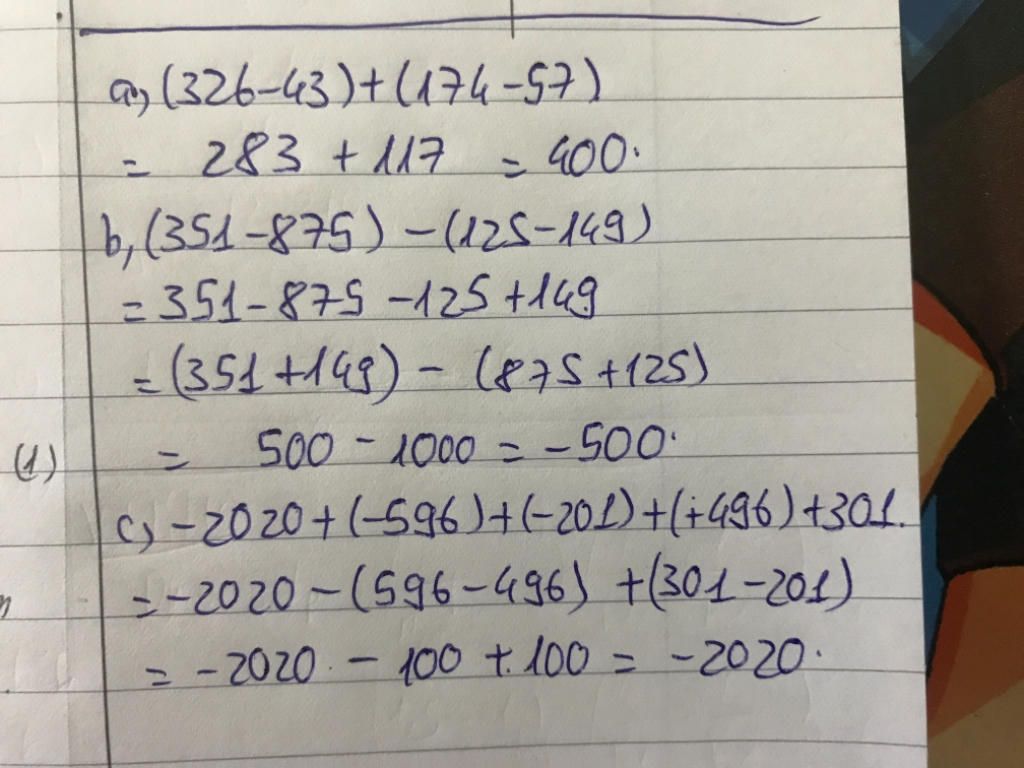 a, (326-43)+(174-57)
= 283 + 117 = 400.
b, (351-875) - (125-149)
= 351-875 -125+149
= (351+149) - (875+125)
(1)
= 500 - 1000 = -500.
c, -2020+(-596)+(-201)+(+496)+301.
= -2020-(596-496) +(301-201)
= -2020 - 100 + 100 = -2020.